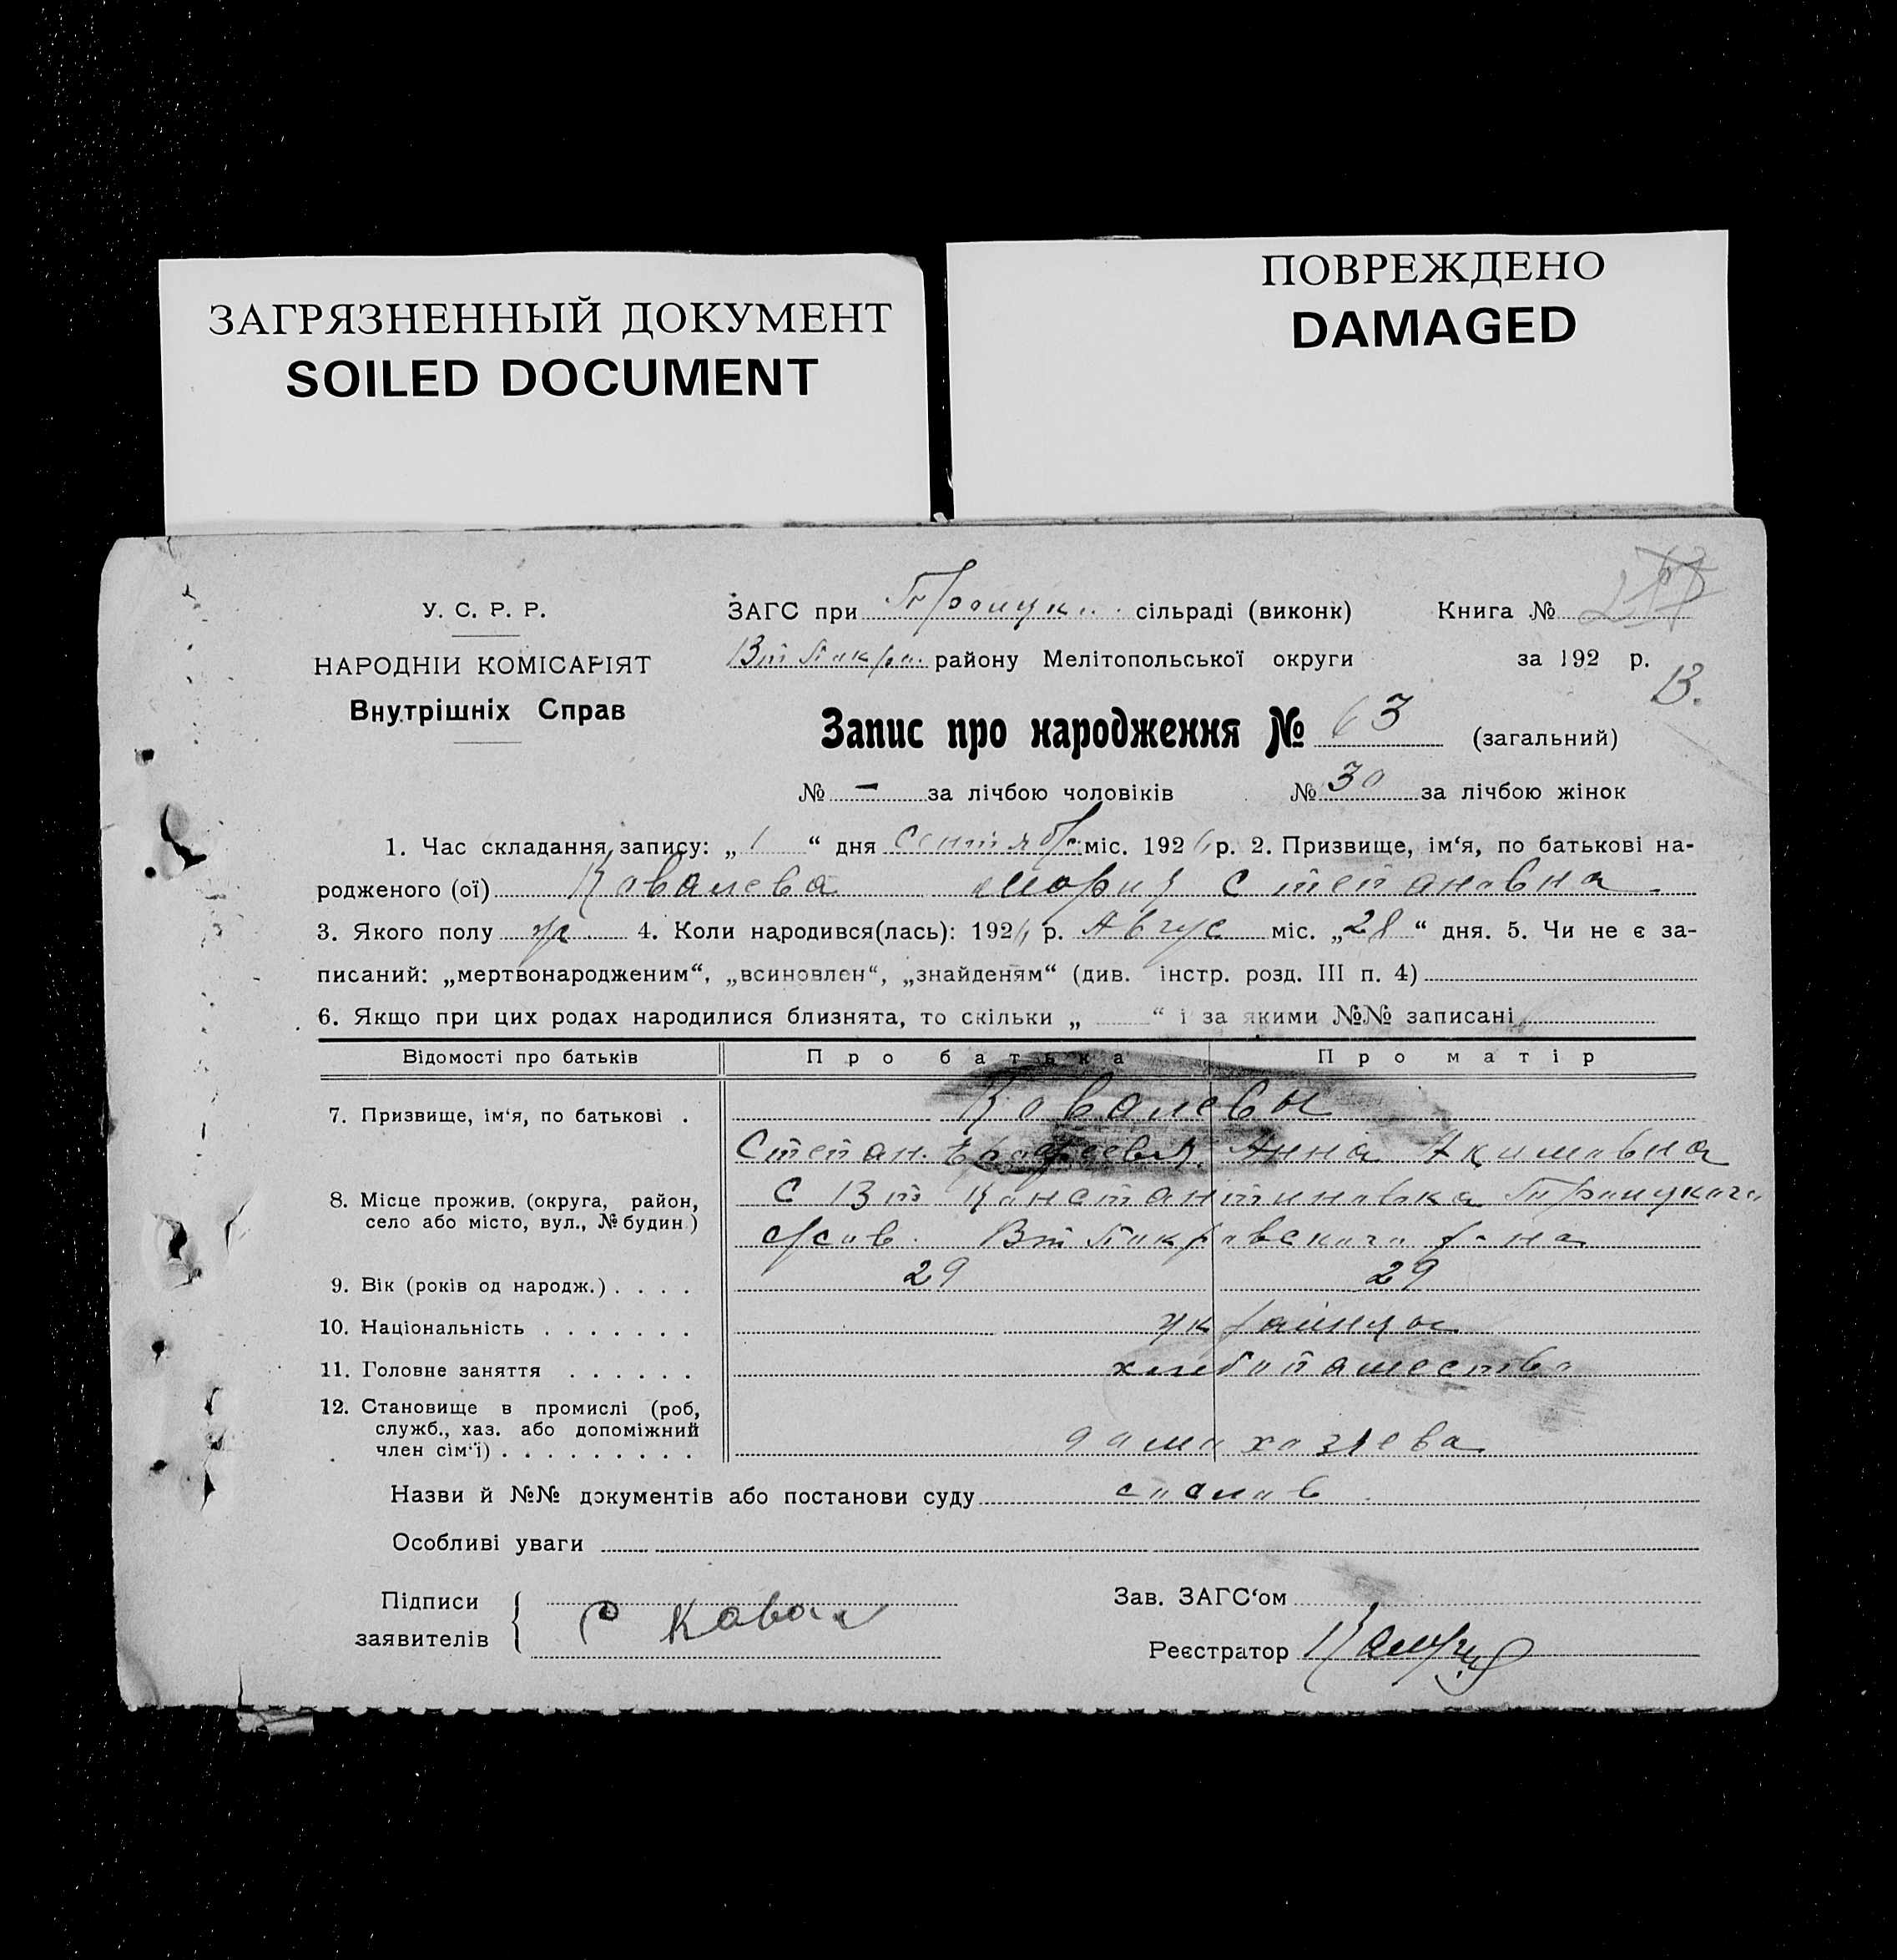 ЗАГРЯЗНЕННЫЙ ДОКУМЕНТ
SOILED DOCUMENT
ПОВРЕЖДЕНО
DAMAGED
У. С. Р. Р.
НАРОДНІЙ КОМІСАРІЯТ
Внутрішніх Справ
ЗАГС при сільраді (виконк) Книга №
району Мелітопольської округи за 192 р.
В.
Запис про народження № 63 (загальний)
№ — за лічбою чоловіків № 30 за лічбою жінок
1. Час складання запису: „ 1 “ дня міс. 192 р. 2. Призвище, ім‘я, по батькові на-
родженого (ої) Ковалева Мария Степановна
3. Якого полу ж. 4. Коли народився(лась): 192 р. Авгус міс. „28“ дня. 5. Чи не є за-
писаний: „мертвонародженим“, „всиновлен“, „знайденям“ (див. інстр. розд. III п. 4)
6. Якщо при цих родах народилися близнята, то скільки „ “ і за якими №№ записані
Відомості про батьків Про батька Про матір
7. Призвище, ім‘я, по батькові . Ковалевы
Степан Анна Акимовна
8. Місце прожив. (округа, район,
село або місто, вул., № будин.)
С Вт Константиновка Троицкого
Вт Покровского р-на
9. Вік (років од народж.) . . . . 29 29
10. Національність . . . . . . . украинцы
11. Головне заняття . . . . . . хлебопашество
12. Становище в промислі (роб,
служб., хаз. або допоміжний
член сім‘ї) . . . . . . . . . домохозяева
Назви й №№ документів або постанови суду
Особливі уваги
Підписи
заявителів
С Ковал
Зав. ЗАГС‘ом
Реєстратор